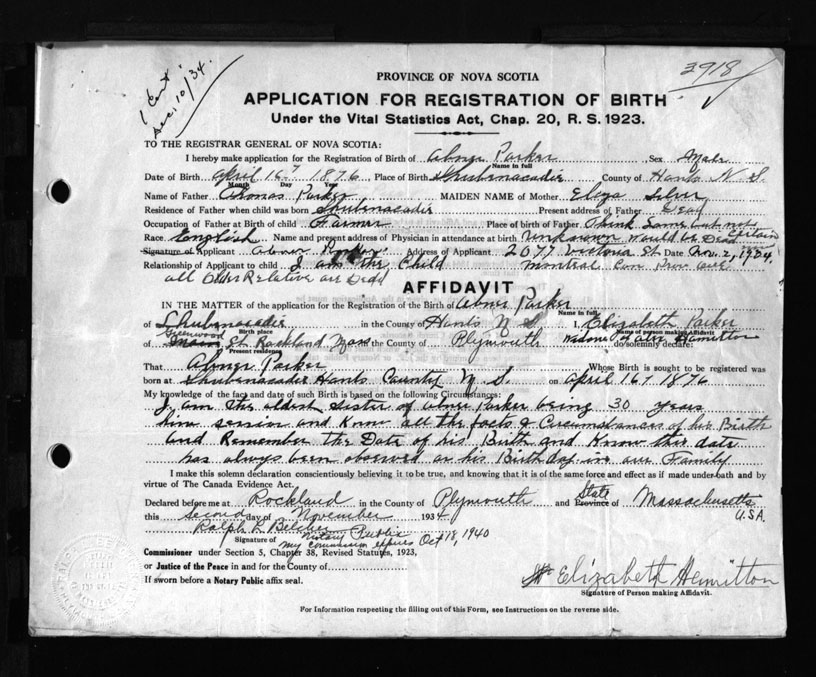 3918
1 Cert.
Dec. 10/34.
PROVINCE OF NOVA SCOTIA
APPLICATION FOR REGISTRATION OF BIRTH
Under the Vital Statistics Act, Chap. 20, R. S. 1923.
TO THE REGISTRAR GENERAL OF NOVA SCOTIA:
I hereby make application for the Registration of Birth of Abner Parker Sex Male
Name in full
Date of Birth April 16 1876 Place of Birth Shubenacadie County of Hants N. S.
Month Day Year
Name of Father Thomas Parker MAIDEN NAME of Mother Eliza
Residence of Father when child was born Shubenacadie Present address of Father Dead
Occupation of Father at Birth of child Farmer Place of birth of Father Think Same but not Certain
Race English Name and present address of Physician in attendance at birth Unknown would be Dead now
Signature of Applicant Abner Parker Address of Applicant 2077 Victoria St Date Nov. 2, 1934
Relationship of Applicant to child I am the Child Montreal
all Older Relative are Dead
AFFIDAVIT
IN THE MATTER of the application for Registration of the Birth of Abner Parker
Name in full
of Shubenacadie in the County of Hants N S I, Elizabeth Parker
Birth place Name of person making Affidavit
of Greenwood St Rockland Mass in the County of Plymouth Widow of Hamilton do solemnly declare:
Present residence
That Abner Parker Whose Birth is sought to be registered was
born at Shubenacadie Hants County N. S. on April 16 1876
My knowledge of the fact and date of such Birth is based on the following Circumstances:
I am the oldest sister of Abner Parker being 30 years
his senior and know all the facts & Circumstances of his Birth
and Remember the Date of his Birth and Know this date
has always been observed as his Birthday in our Family
I make this solemn declaration conscientiously believing it to be true, and knowing that it is of the same force and effect as if made under oath and by
virtue of The Canada Evidence Act.
Declared before me at Rockland in the County of Plymouth and State Province of Massachusetts
this second day of November 1934 U.S.A.
Ralph L Belcher
Signature of Notary Public
my commission expires Oct 18, 1940
Commissioner under Section 5, Chapter 38, Revised Statutes, 1923,
or Justice of the Peace in and for the County of
If sworn before a Notary Public affix seal.
Elizabeth Hamilton
Signature of Person making Affidavit.
For Information respecting the filling out of this Form, see Instructions on the reverse side.